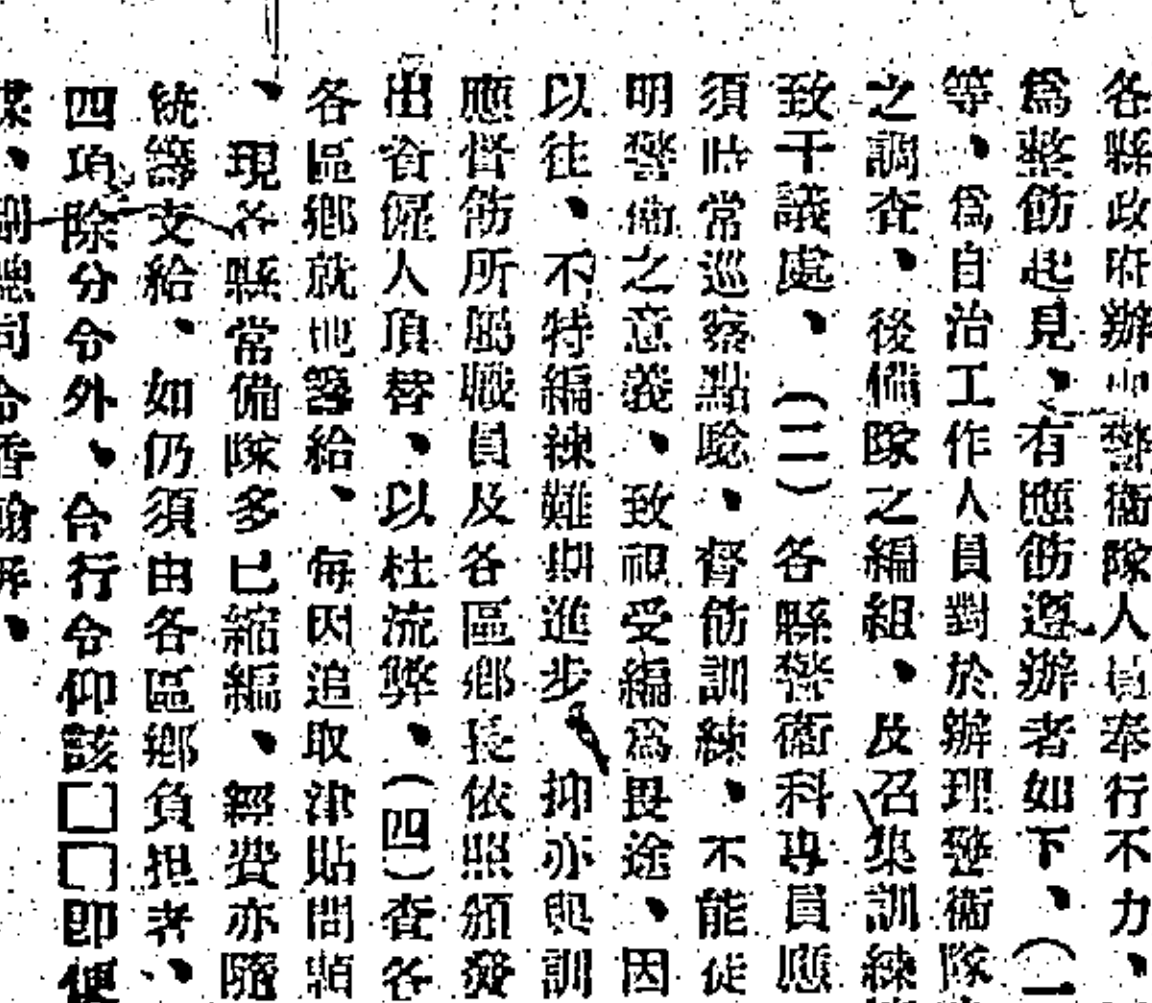 各縣政府辦警衞隊人員奉行不力、
爲整飭起見、有應飭遵辦者如下、(一
等、爲自治工作人員對於辦理警衞隊
之調查、後備隊之編組、及召集訓練
致干議處、(二)各縣警衞科專員應
須時常巡察點驗、督飭訓練、不能徒
明警衞之意義、致視受編爲畏途、因
以往、不特編練難期進步、抑亦與訓
應督飭所屬職員及各區鄉長依照頒發
出資僱人頂替、以杜流弊、(四)查各
各區鄉就地籌給、每因追取津貼問題
、現各縣常備隊多已縮編、經費亦隨
統籌支給、如仍須由各區鄉負担者、
四項除分令外、合行令仰該□□即便
司令香翰屏、